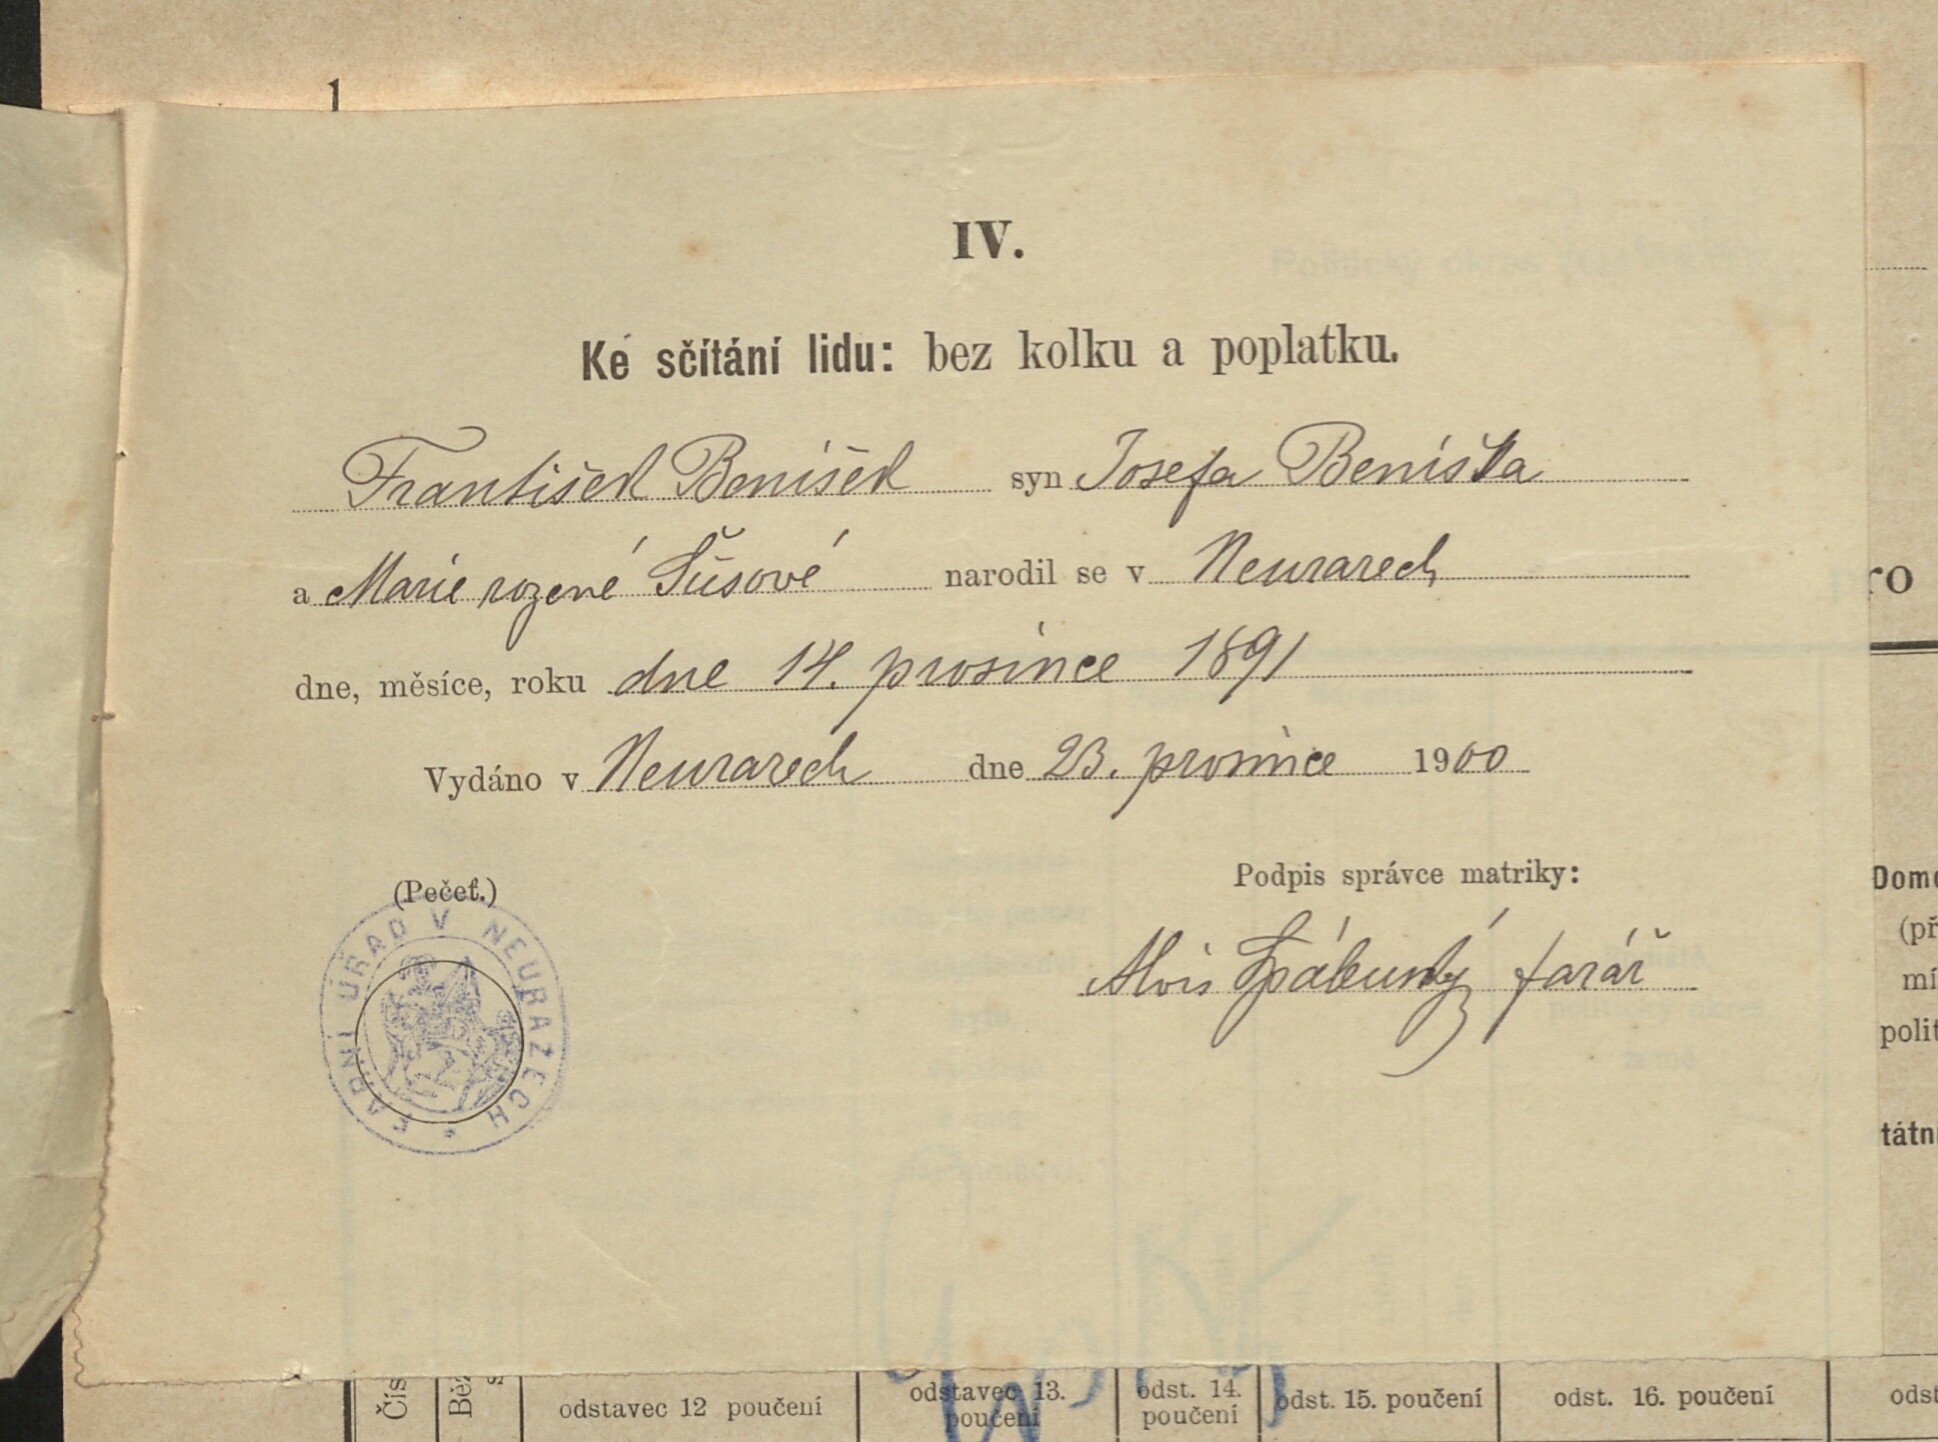 1
IV.
Ke sčítání lidu: bez kolku a poplatku.
František Benišek syn Josefa Beniška
a Marie rozené Šůsové narodil se v Neurazech
dne, měsíce, roku dne 14. prosince 1891
Vydáno v Neurazech dne 23. prosince 1900
(Pečeť.)
FARNÍ ÚŘAD V NEURAZECH *
Podpis správce matriky:
Alois farář
ro
Domo
(př
mí
polit
tátní
Čís
Běž
odstavec 12 poučení
odstavec 13. poučení
odst. 14. poučení
odst. 15. poučení
odst. 16. poučení
odst